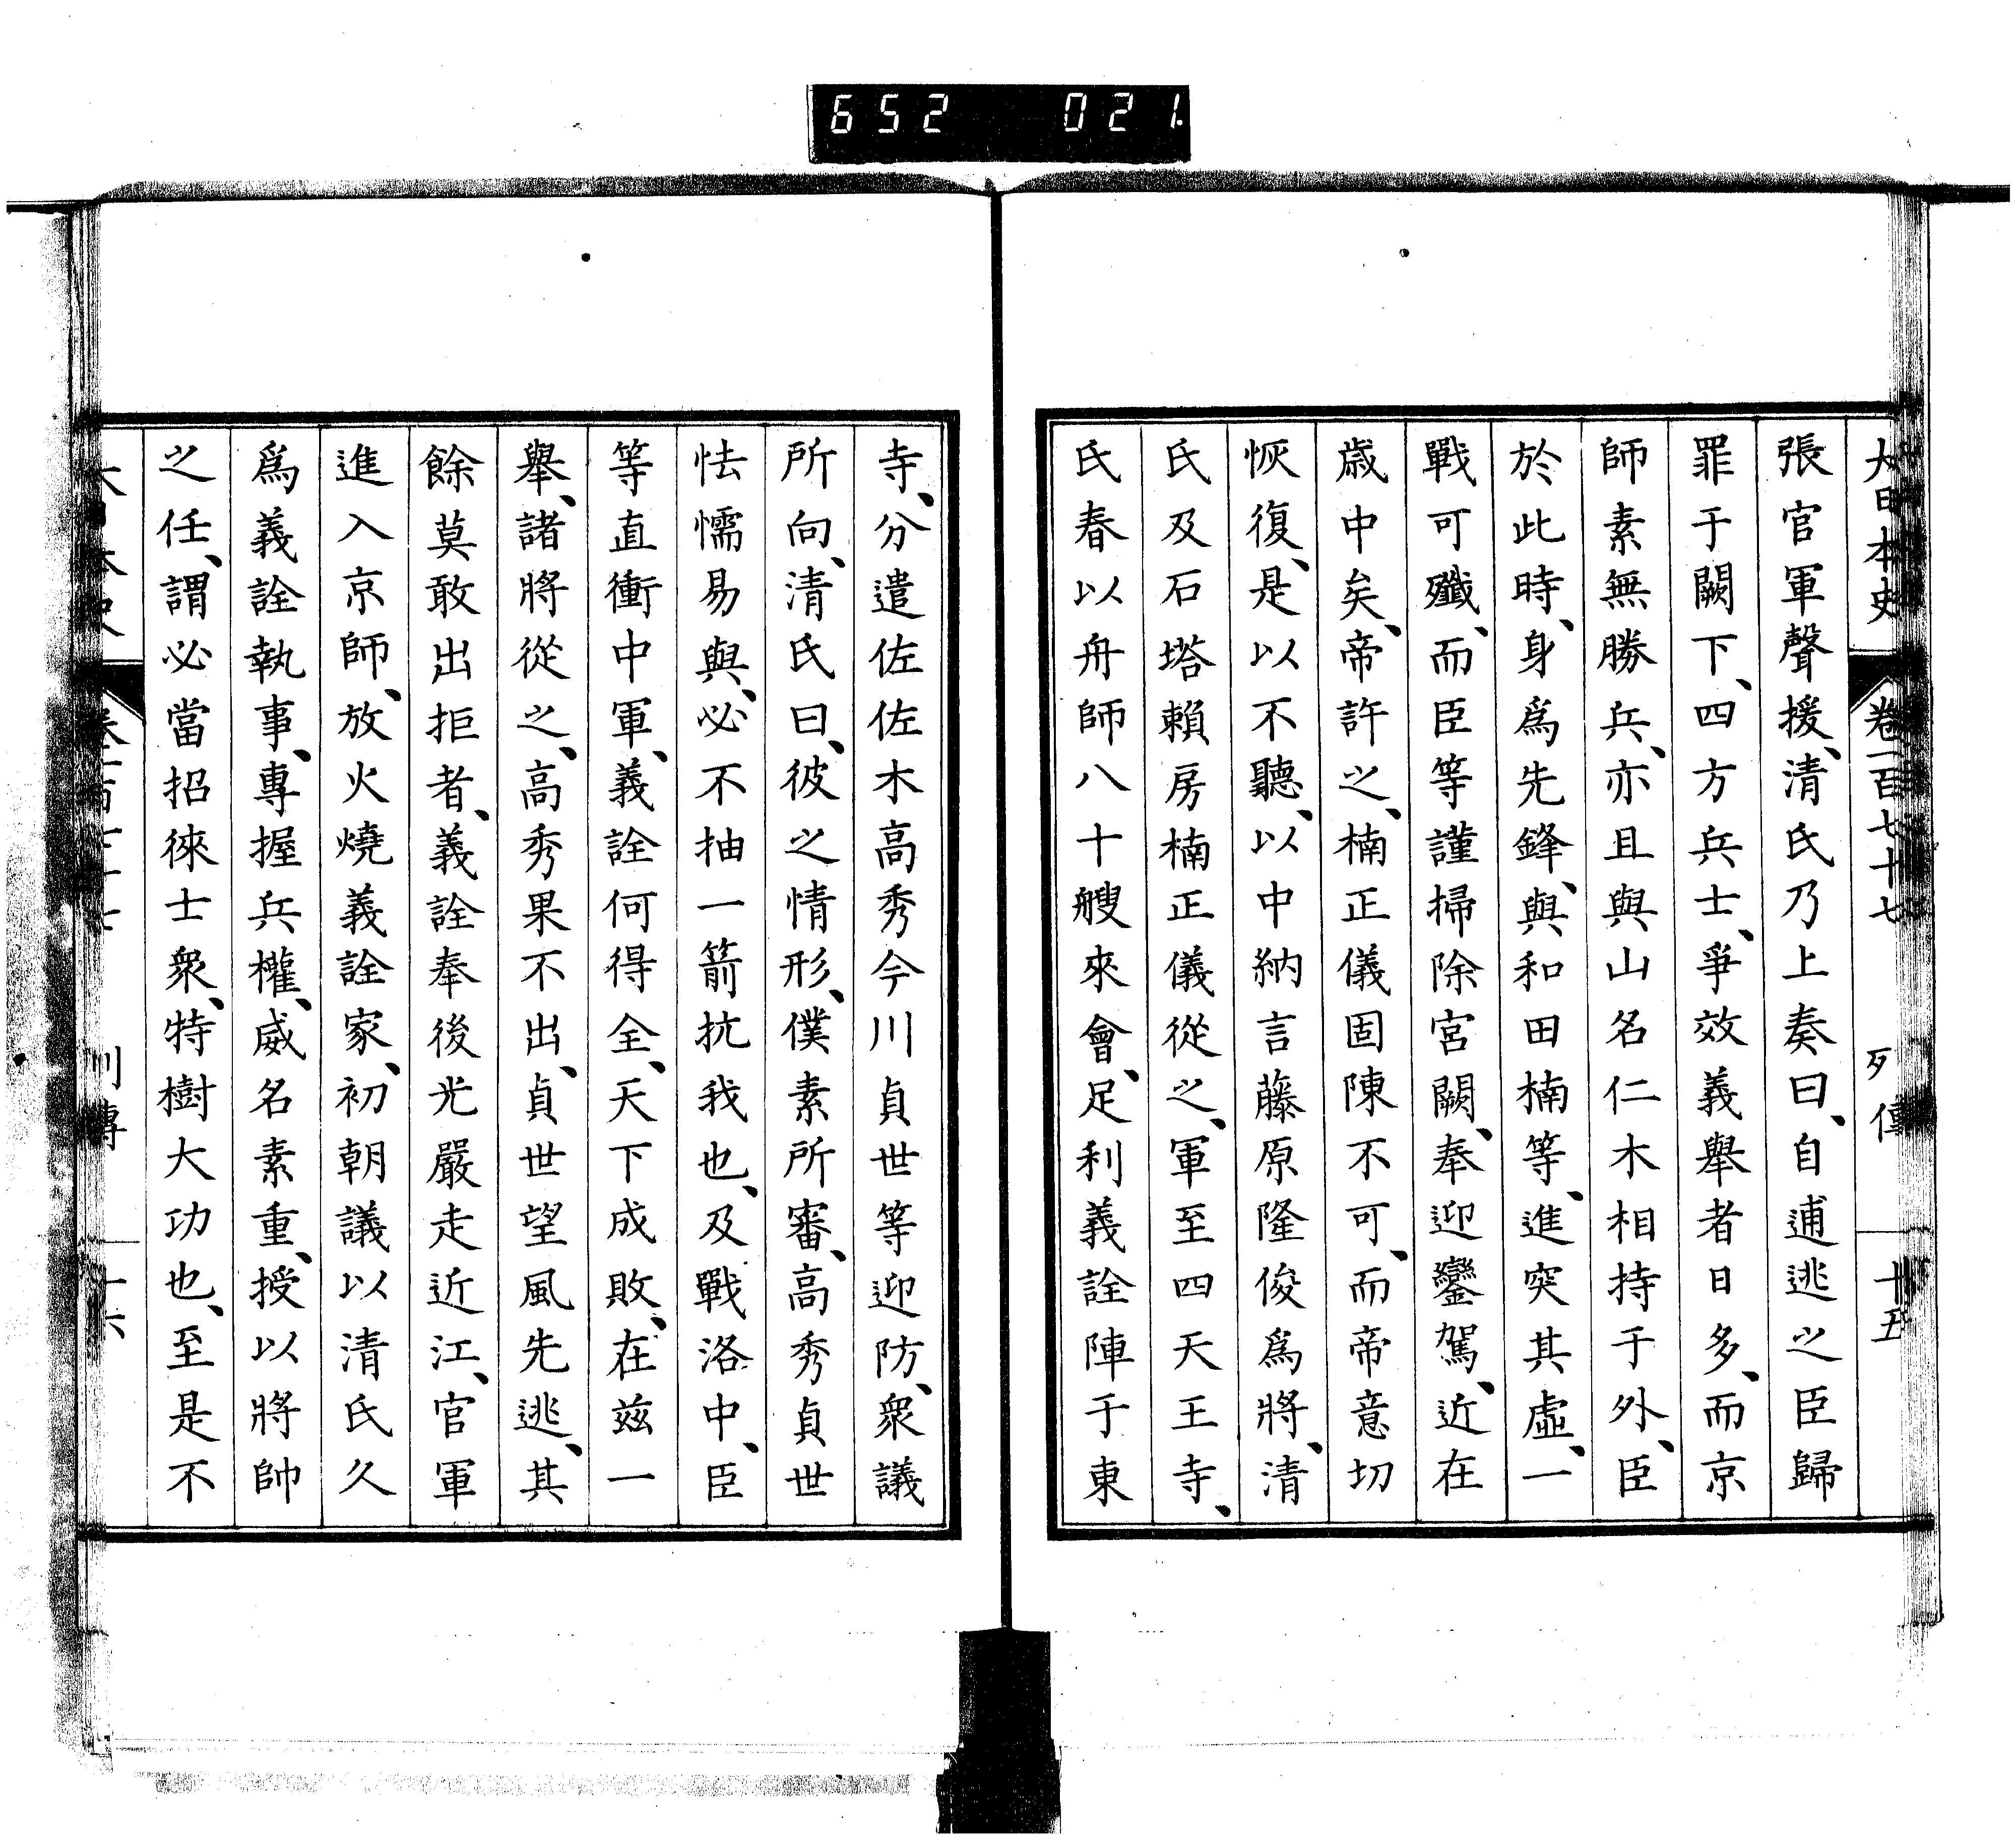 652 021.
大日本史 卷一百七十七 列傳 十五
張官軍聲援、清氏乃上奏曰、自逋逃之臣歸
罪于闕下、四方兵士、爭效義舉者日多、而京
師素無勝兵、亦且與山名仁木相持于外、臣
於此時、身爲先鋒、與和田楠等、進突其虛、一
戰可殲、而臣等謹掃除宮闕、奉迎鑾駕、近在
歲中矣、帝許之、楠正儀固陳不可、而帝意切
恢復、是以不聽、以中納言藤原隆俊爲將、清
氏及石塔賴房楠正儀從之、軍至四天王寺、
氏春以舟師八十艘來會、足利義詮陣于東
寺、分遣佐佐木高秀今川貞世等迎防、衆議
所向、清氏曰、彼之情形、僕素所審、高秀貞世
怯懦易與、必不抽一箭抗我也、及戰洛中、臣
等直衝中軍、義詮何得全、天下成敗、在茲一
舉、諸將從之、高秀果不出、貞世望風先逃、其
餘莫敢出拒者、義詮奉後光嚴走近江、官軍
進入京師、放火燒義詮家、初朝議以清氏久
爲義詮執事、專握兵權、威名素重、授以將帥
之任、謂必當招徠士衆、特樹大功也、至是不
大日本史 卷一百七十七 列傳 十六